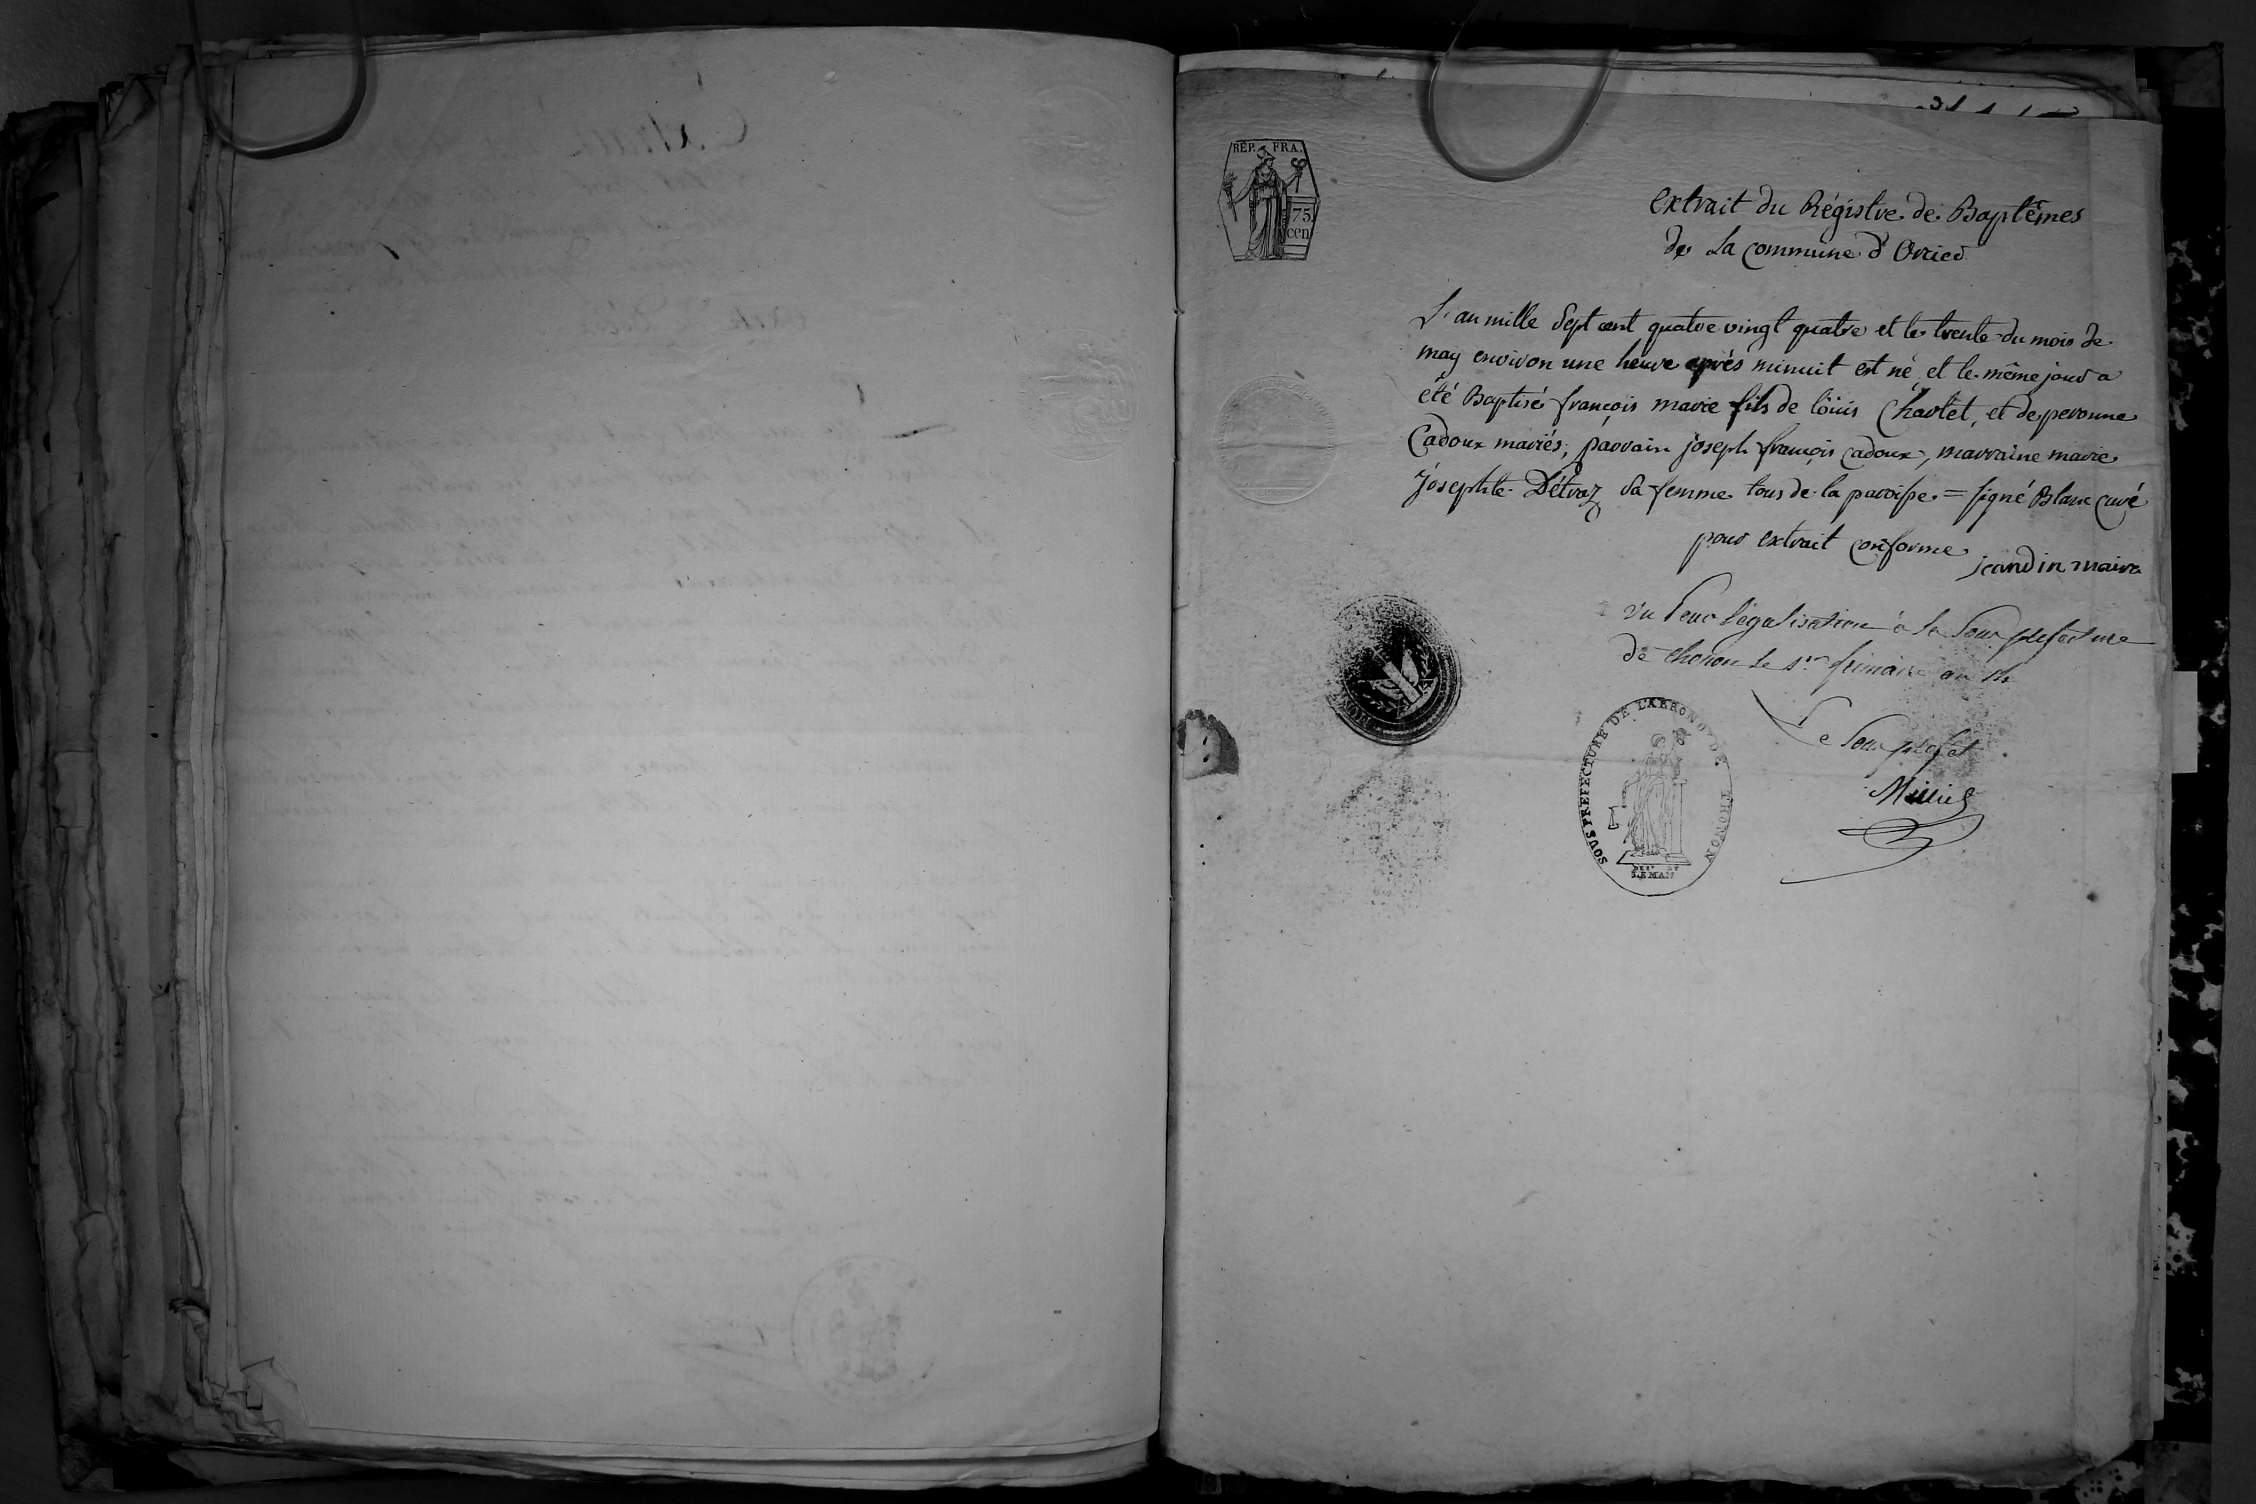 RÉP. FRA.
75
cen
extrait du Régistre de Baptêmes
de La commune d'Orcier
L'an mille Sept cent quatre vingt quatre et le trente du mois de
may environ une heure après minuit est né, et le même jour a
été Baptisé françois marie fils de loüis Charlet, et de peronne
Cadoux mariés; parrain joseph françois Cadoux, marraine marie
josephte Détraz sa femme tous de la paroisse = signé Blanc Curé
pour extrait conforme jeandin maire
Vu Pour légalisation à la Sous prefecture
de thonon le 1er frimaire an
Le Sous prefet
SOUS PREFECTURE DE L'ARROND.T DE THONON
LEMAN